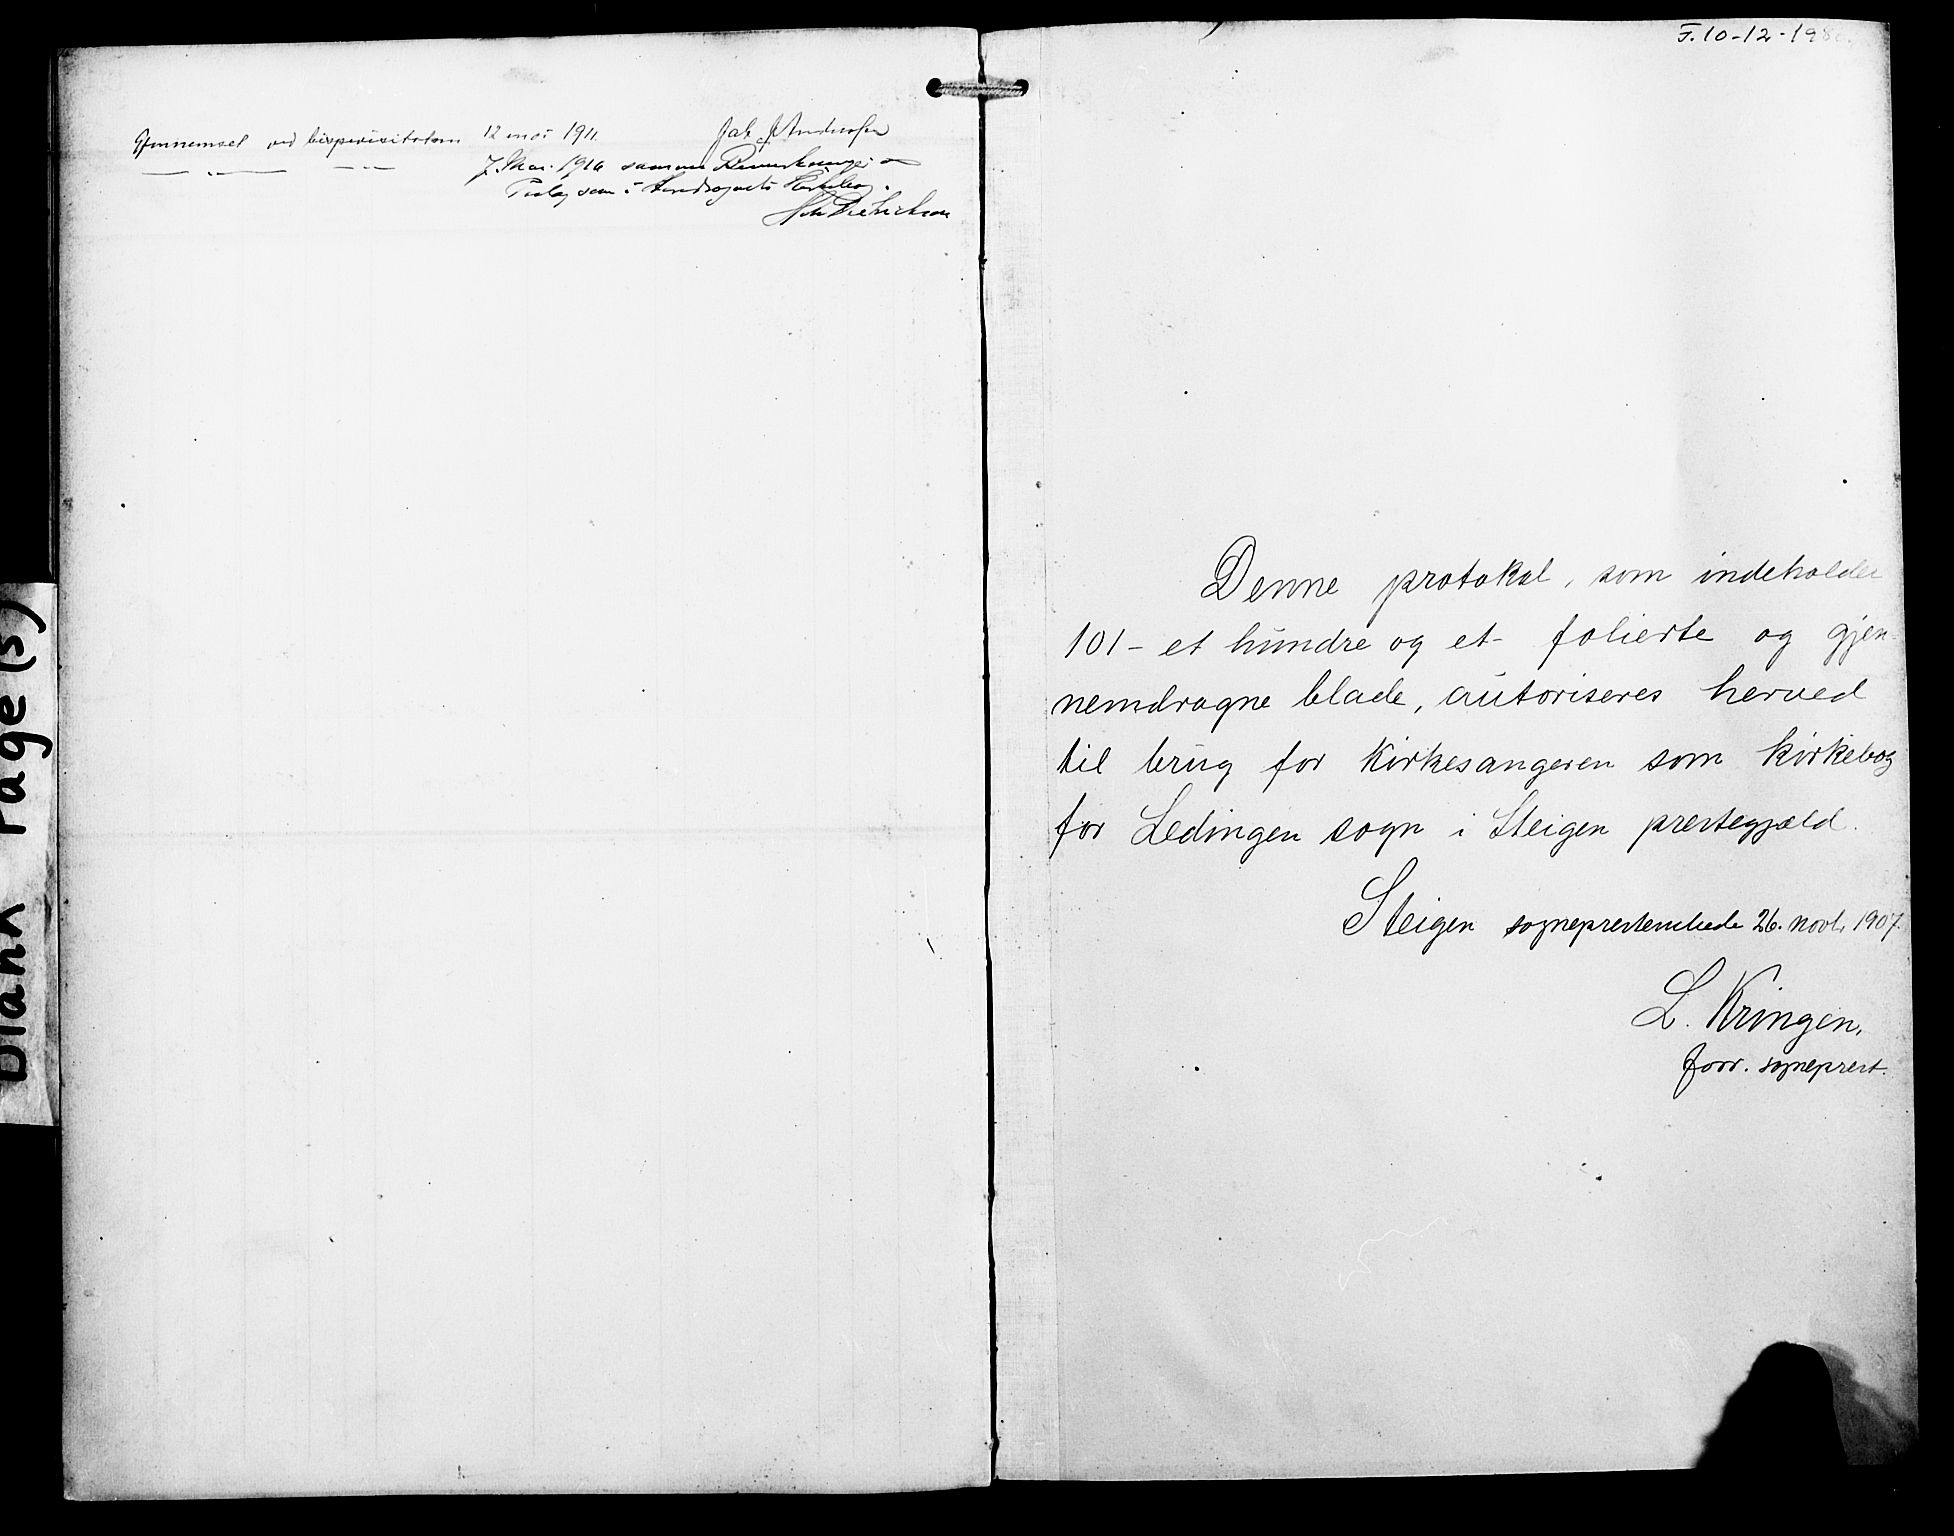 Gjennemset ved bispevisitatsen 12 mai 1911.
7. Mai. 1916 samme Bemerkninger
som i Hovedsognets Kirkebog.
F. 10-12-198
Denne protokol, som indeholder
101 - et hundre og et - folierte og gjen-
nemdragne blade, autoriseres herved
til brug for Kirkesangeren som kirkebog
for Ledingen sogn i Steigen prestegjæld.
Steigen sogneprestembede 26. novb. 1907.
L. Kringen,
forr. sogneprest.
Blank Page(s)